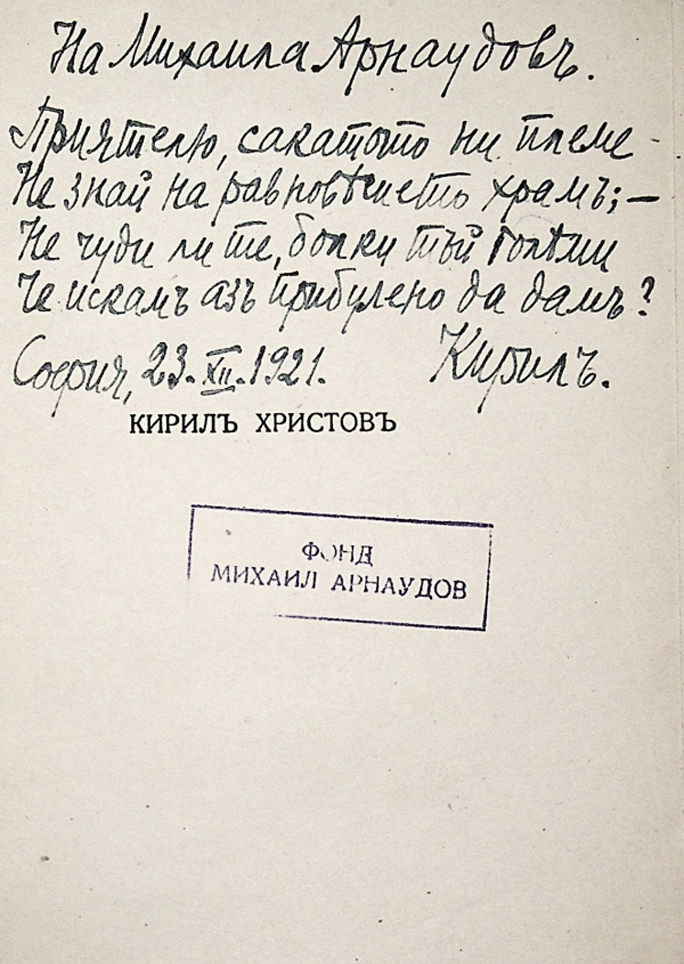 На Михаила Арнаудовъ.
Приятелю, сакатото ни племе
Не знай на равновѣсието храмъ; —
Не чуди ли те, болки тъй голѣми
Че искамъ азъ прибулено да дамъ?
София, 23.XII.1921. Кирилъ.
КИРИЛЪ ХРИСТОВЪ
ФОНД
МИХАИЛ АРНАУДОВ